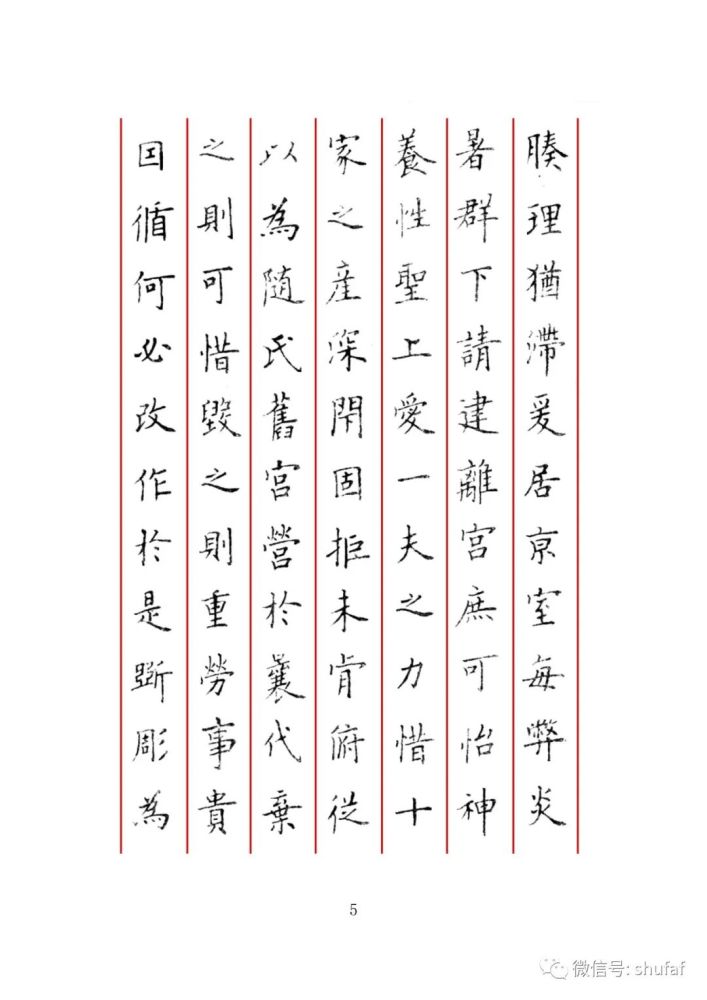 腠理猶滯爰居京室每弊炎
暑群下請建離宮庶可怡神
養性聖上愛一夫之力惜十
家之產深閇固拒未肯俯從
以為隨氏舊宮營於曩代棄
之則可惜毀之則重勞事貴
因循何必改作於是斲彫為
5
微信号: shufaf